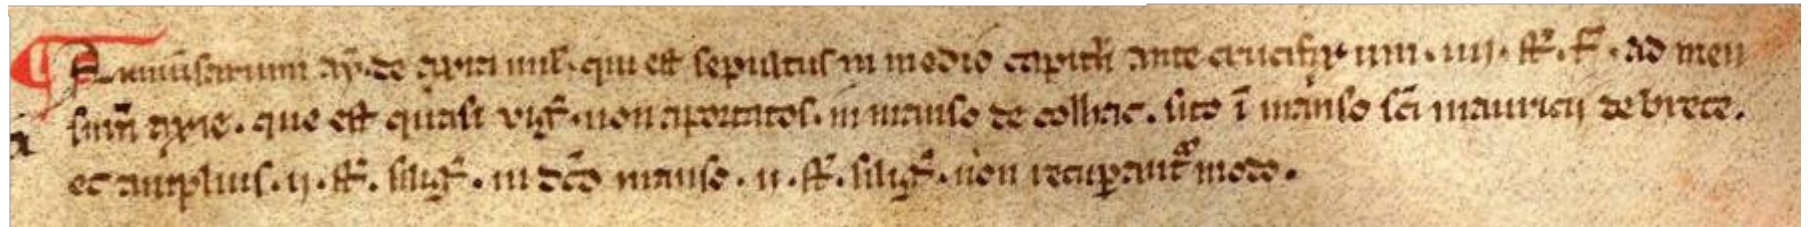 Anniūsarium ay. de axia mil. qui est sepultus in medio capitli ante crucifixum. iiij. st. f. ad men
surā axie. que est quasi vig. non aportatos. in manso de colhac. sito ī manso scī mauricij de brece.
et amplius. ij. st. silig. in dcō manso. ii. st. silig. non recuperant modo.